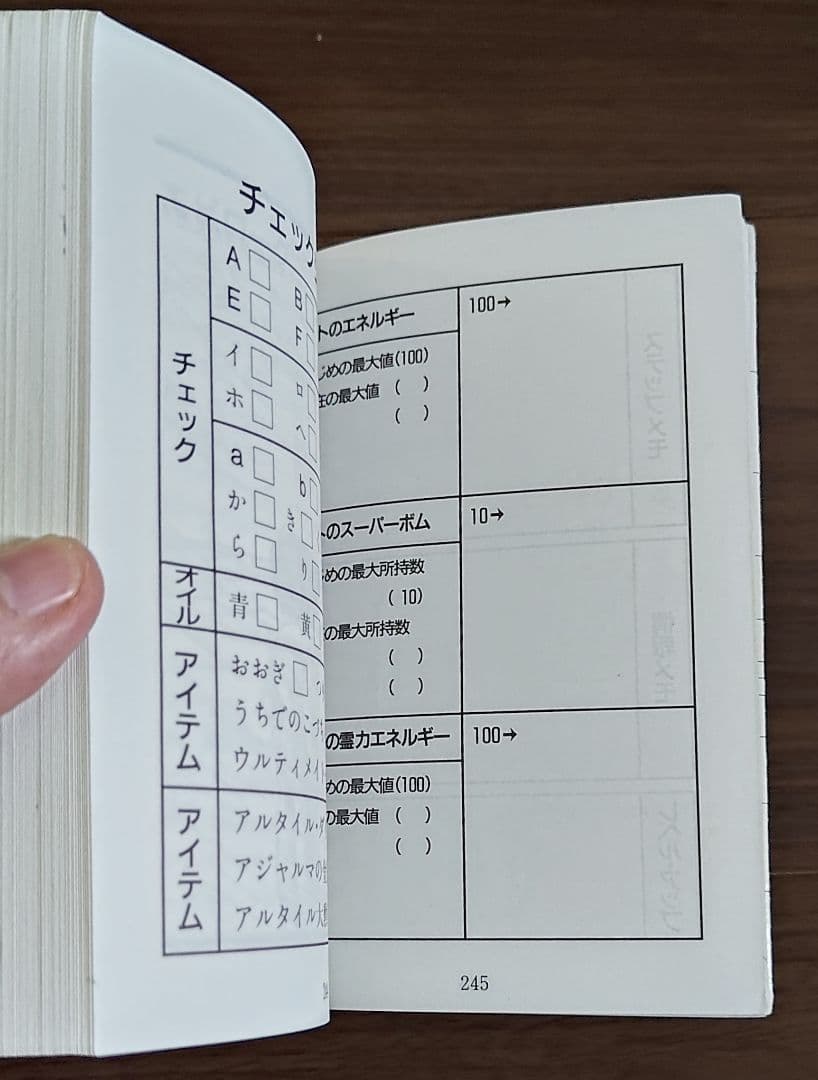 チェック
チェック
A□ B□
E□ F□
イ□ ロ□
ホ□ ヘ□
a□ b□
か□ き□
ら□ り□
オイル
青□ 黄□
アイテム
おおぎ□
うちでのこづち
ウルティメイ
アイテム
アルタイル・
アジャルマの
アルタイル大
トのエネルギー
100→
じめの最大値(100)
在の最大値 ( )
( )
トのスーパーボム
10→
じめの最大所持数
(10)
の最大所持数
( )
( )
の霊力エネルギー
100→
めの最大値(100)
の最大値 ( )
( )
245